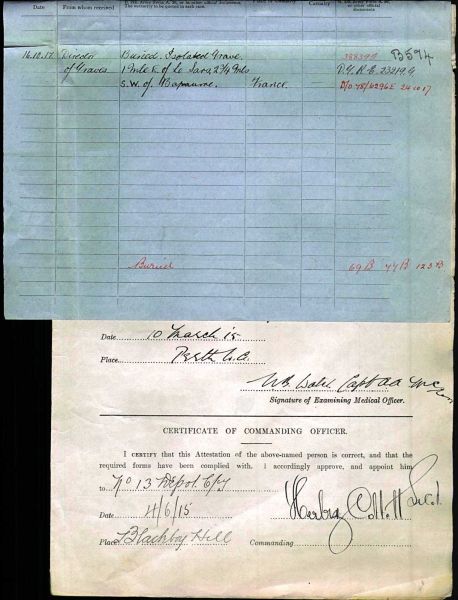 Date
From whom received
Casualty
16.10.17 Director Buried Isolated Grave 388394 B594
of Graves 1 Mile E of Le Sars 2 3/4 Mls D.G.R.E. 23219.G
S.W. of Bapaume. France. D/O 78/6296E 24 10 17
Buried 69 B 44 B 123 B
Date 10 March 15
Place Perth W.A.
Capt AAMC
Signature of Examining Medical Officer.
CERTIFICATE OF COMMANDING OFFICER.
I CERTIFY that this Attestation of the above-named person is correct, and that the
required forms have been complied with. I accordingly approve, and appoint him
to No 13 Depot Cpy
Date 4/6/15
Place Blackboy Hill Commanding